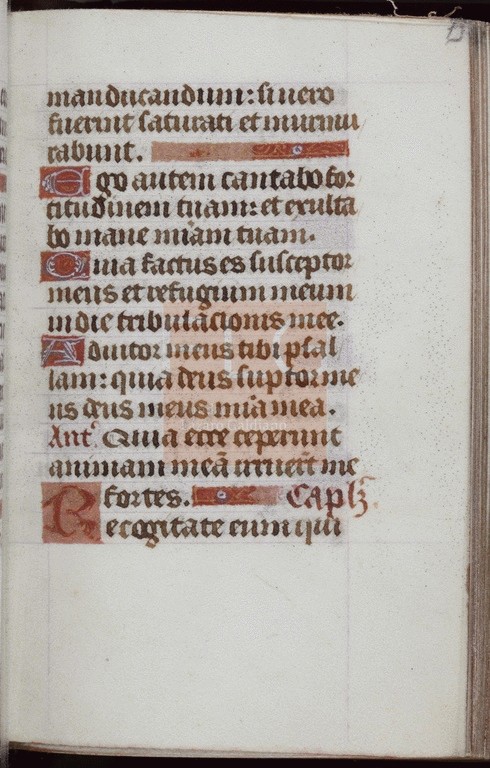 manducandum: si vero
fuerint saturati et murmu
rabunt.
Ego autem cantabo for
titudinem tuam: et exulta
bo mane miam tuam.
Quia factus es susceptor
meus et refugium meum
in die tribulacionis mee.
Adiutor meus tibi psal
lam: quia deus suptor me
us deus meus mia mea.
Ant. Quia ecce ceperunt
animam meã irruert me
fortes. Caplz.
Recogitate eum qui
Lázaro Galdiano